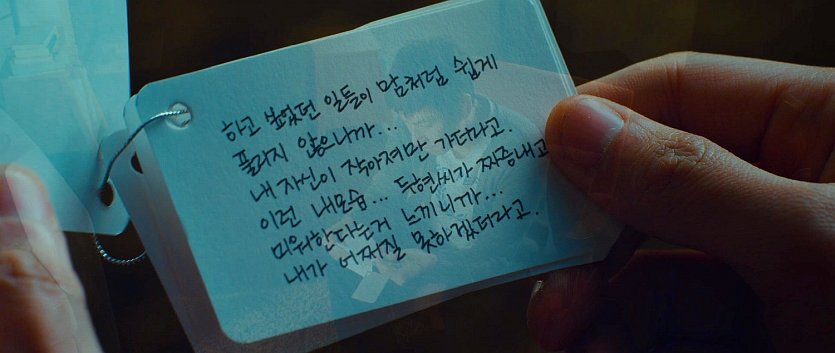 하고 싶었던 일들이 맘처럼 쉽게
풀리지 않으니까...
내 자신이 작아져만 가더라고.
이런 내모습... 두현씨가 짜증내고
미워한다는거 느끼니까...
내가 어쩌질 못하겠더라고.